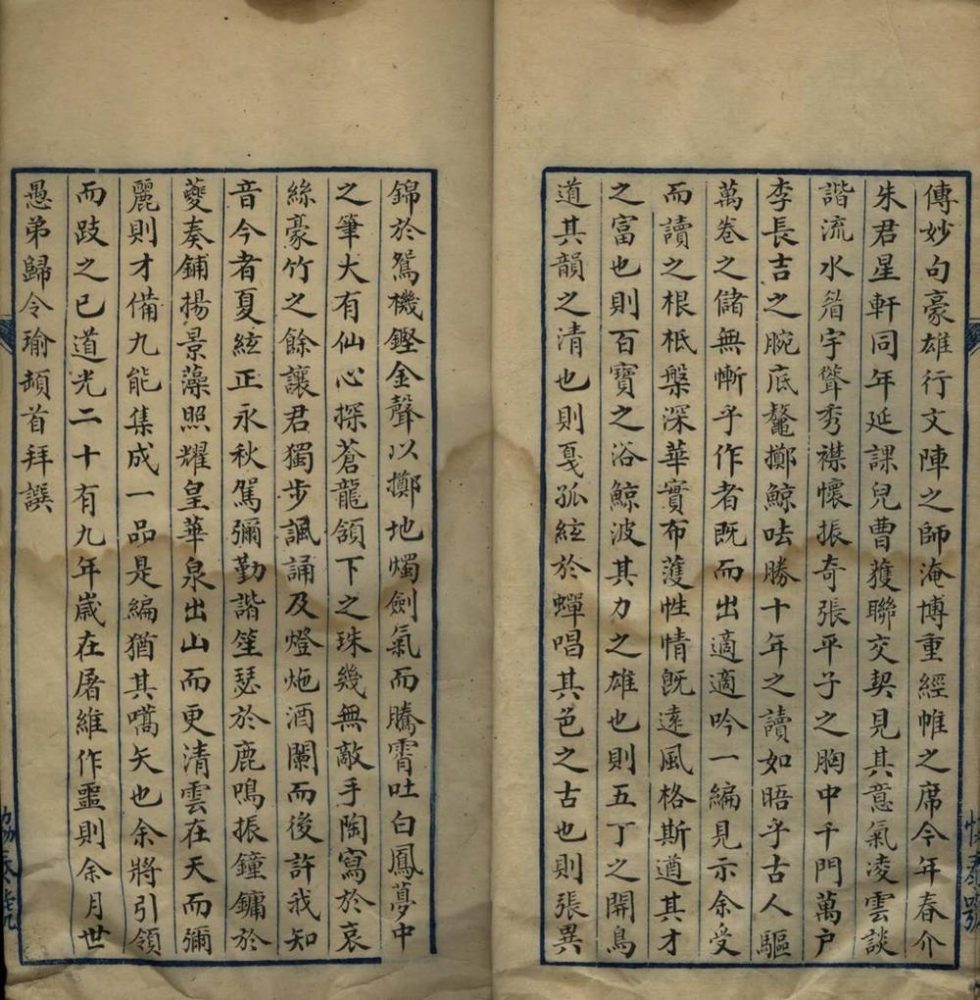 傳妙句豪雄行文陣之師淹博重經帷之席今年春介
朱君星軒同年延課兒曹獲聯交契見其意氣凌雲談
諧流水眉宇聳秀襟懷振奇張平子之胸中千門萬户
李長吉之腕底鼇擲鯨呿勝十年之讀如晤乎古人驅
萬卷之儲無慚乎作者既而出適適吟一編見示余受
而讀之根柢槃深華實布濩性情旣遠風格斯遒其才
之富也則百寶之浴鯨波其力之雄也則五丁之開鳥
道其韻之清也則戛孤絃於蟬唱其色之古也則張異
錦於鴛機鏗金聲以擲地燭劍氣而騰霄吐白鳳夢中
之筆大有仙心探蒼龍頷下之珠幾無敵手陶寫於哀
絲豪竹之餘讓君獨步諷誦及燈灺酒闌而後許我知
音今者夏絃正永秋駕彌勤諧笙瑟於鹿鳴振鐘鏞於
夔奏鋪揚景藻照耀皇華泉出山而更清雲在天而彌
麗則才備九能集成一品是編猶其嚆矢也余將引領
而跂之已道光二十有九年歲在屠維作噩則余月世
愚弟歸令瑜頓首拜譔